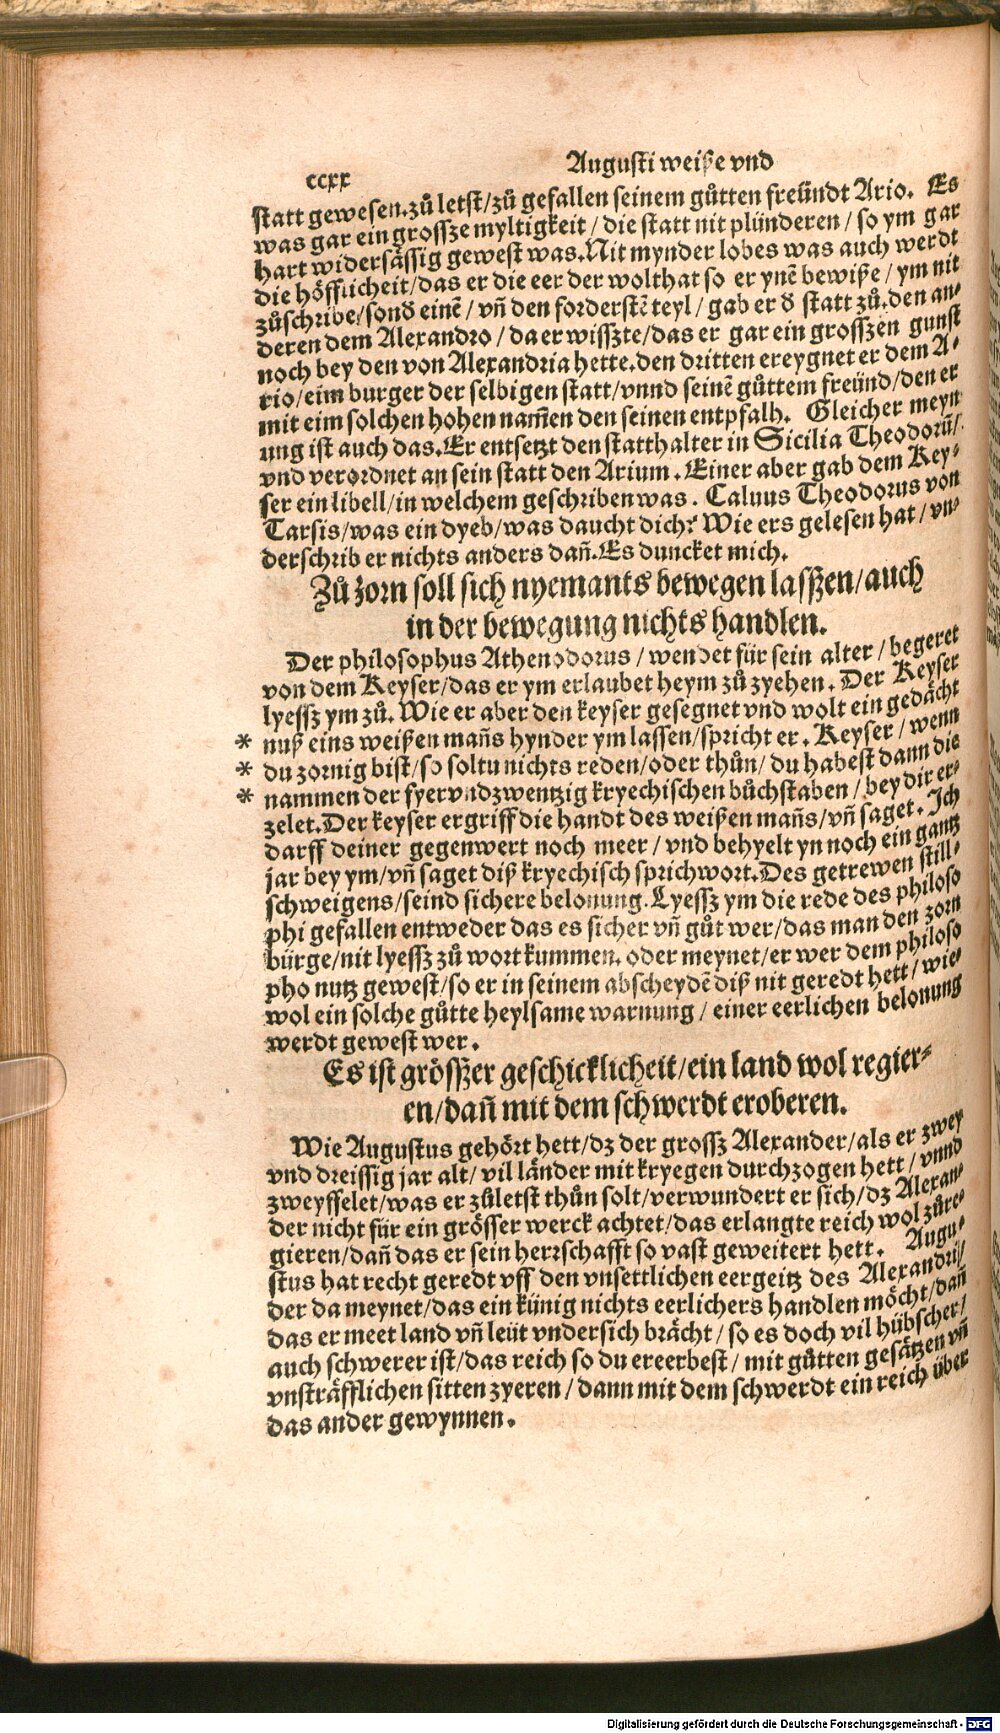 ccxx
Augusti weiße vnd
statt gewesen.zů letst/zů gefallen seinem gůtten freündt Ario. Es
was gar ein grossze myltigkeit / die statt nit plünderen / so ym gar
hart widersässig gewest was.Nit mynder lobes was auch werdt
die höfflicheit/das er die eer der wolthat so er ynē bewiße / ym nit
zůschribe/sonđ einē / vñ den forderstē teyl / gab er đ statt zů.den an⸗
deren dem Alexandro / da er wisszte/das er gar ein grosszen gunst
noch bey den von Alexandria hette.den dritten ereygnet er dem A⸗
rio/eim burger der selbigen statt/vnnd seinē gůttem freünd/den er
mit eim solchen hohen nam̄en den seinen entpfalh. Gleicher meyn
ung ist auch das.Er entsetzt den statthalter in Sicilia Theodorū/
vnd verordnet an sein statt den Arium . Einer aber gab dem Key⸗
ser ein libell/in welchem geschriben was . Caluus Theodorus von
Tarsis/was ein dyeb/was daucht dich? Wie ers gelesen hat / vn⸗
derschrib er nichts anders dañ.Es duncket mich.
Zů zorn soll sich nyemants bewegen lasszen/auch
in der bewegung nichts handlen.
Der philosophus Athenodorus / wendet für sein alter / begeret
von dem Keyser/das er ym erlaubet heym zů zyehen . Der Keyser
lyessz ym zů. Wie er aber den keyser gesegnet vnd wolt ein gedächt
* nuß eins weißen mañs hynder ym lassen/spricht er . Keyser / wenn
* du zornig bist/so soltu nichts reden/oder thůn/ du habest dann die
* nammen der fyervndzwentzig kryechischen bůchstaben / bey dir er⸗
zelet.Der keyser ergriff die handt des weißen mañs/vñ saget . Ich
darff deiner gegenwert noch meer / vnd behyelt yn noch ein gantz
jar bey ym/vñ saget diß kryechisch sprichwort.Des getrewen still⸗
schweigens/seind sichere belonung. Lyessz ym die rede des philoso
phi gefallen entweder das es sicher vñ gůt wer/das man den zorn
bürge/nit lyessz zů wort kummen. oder meynet/er wer dem philoso
pho nutz gewest/so er in seinem abscheydē diß nit geredt hett / wie⸗
wol ein solche gůtte heylsame warnung / einer eerlichen belonung
werdt gewest wer .
Es ist grösszer geschicklicheit/ein land wol regier⸗
en/dañ mit dem schwerdt eroberen.
Wie Augustus gehört hett/dz der grossz Alexander/als er zwey
vnd dreissig jar alt/ vil länder mit kryegen durchzogen hett / vnnd
zweyffelet/was er zůletst thůn solt/verwundert er sich/dz Alexan⸗
der nicht für ein grösser werck achtet/das erlangte reich wol zůre⸗
gieren/dañ das er sein herrschafft so vast geweitert hett . Augu⸗
stus hat recht geredt vff den vnsettlichen eergeitz des Alexandri/
der da meynet/das ein künig nichts eerlichers handlen möcht/dañ
das er meet land vñ leüt vndersich brächt / so es doch vil hübscher/
auch schwerer ist/das reich so du ereerbest / mit gůtten gesätzen vñ
vnsträfflichen sitten zyeren / dann mit dem schwerdt ein reich über
das ander gewynnen .
Digitalisierung gefördert durch die Deutsche Forschungsgemeinschaft - DFG